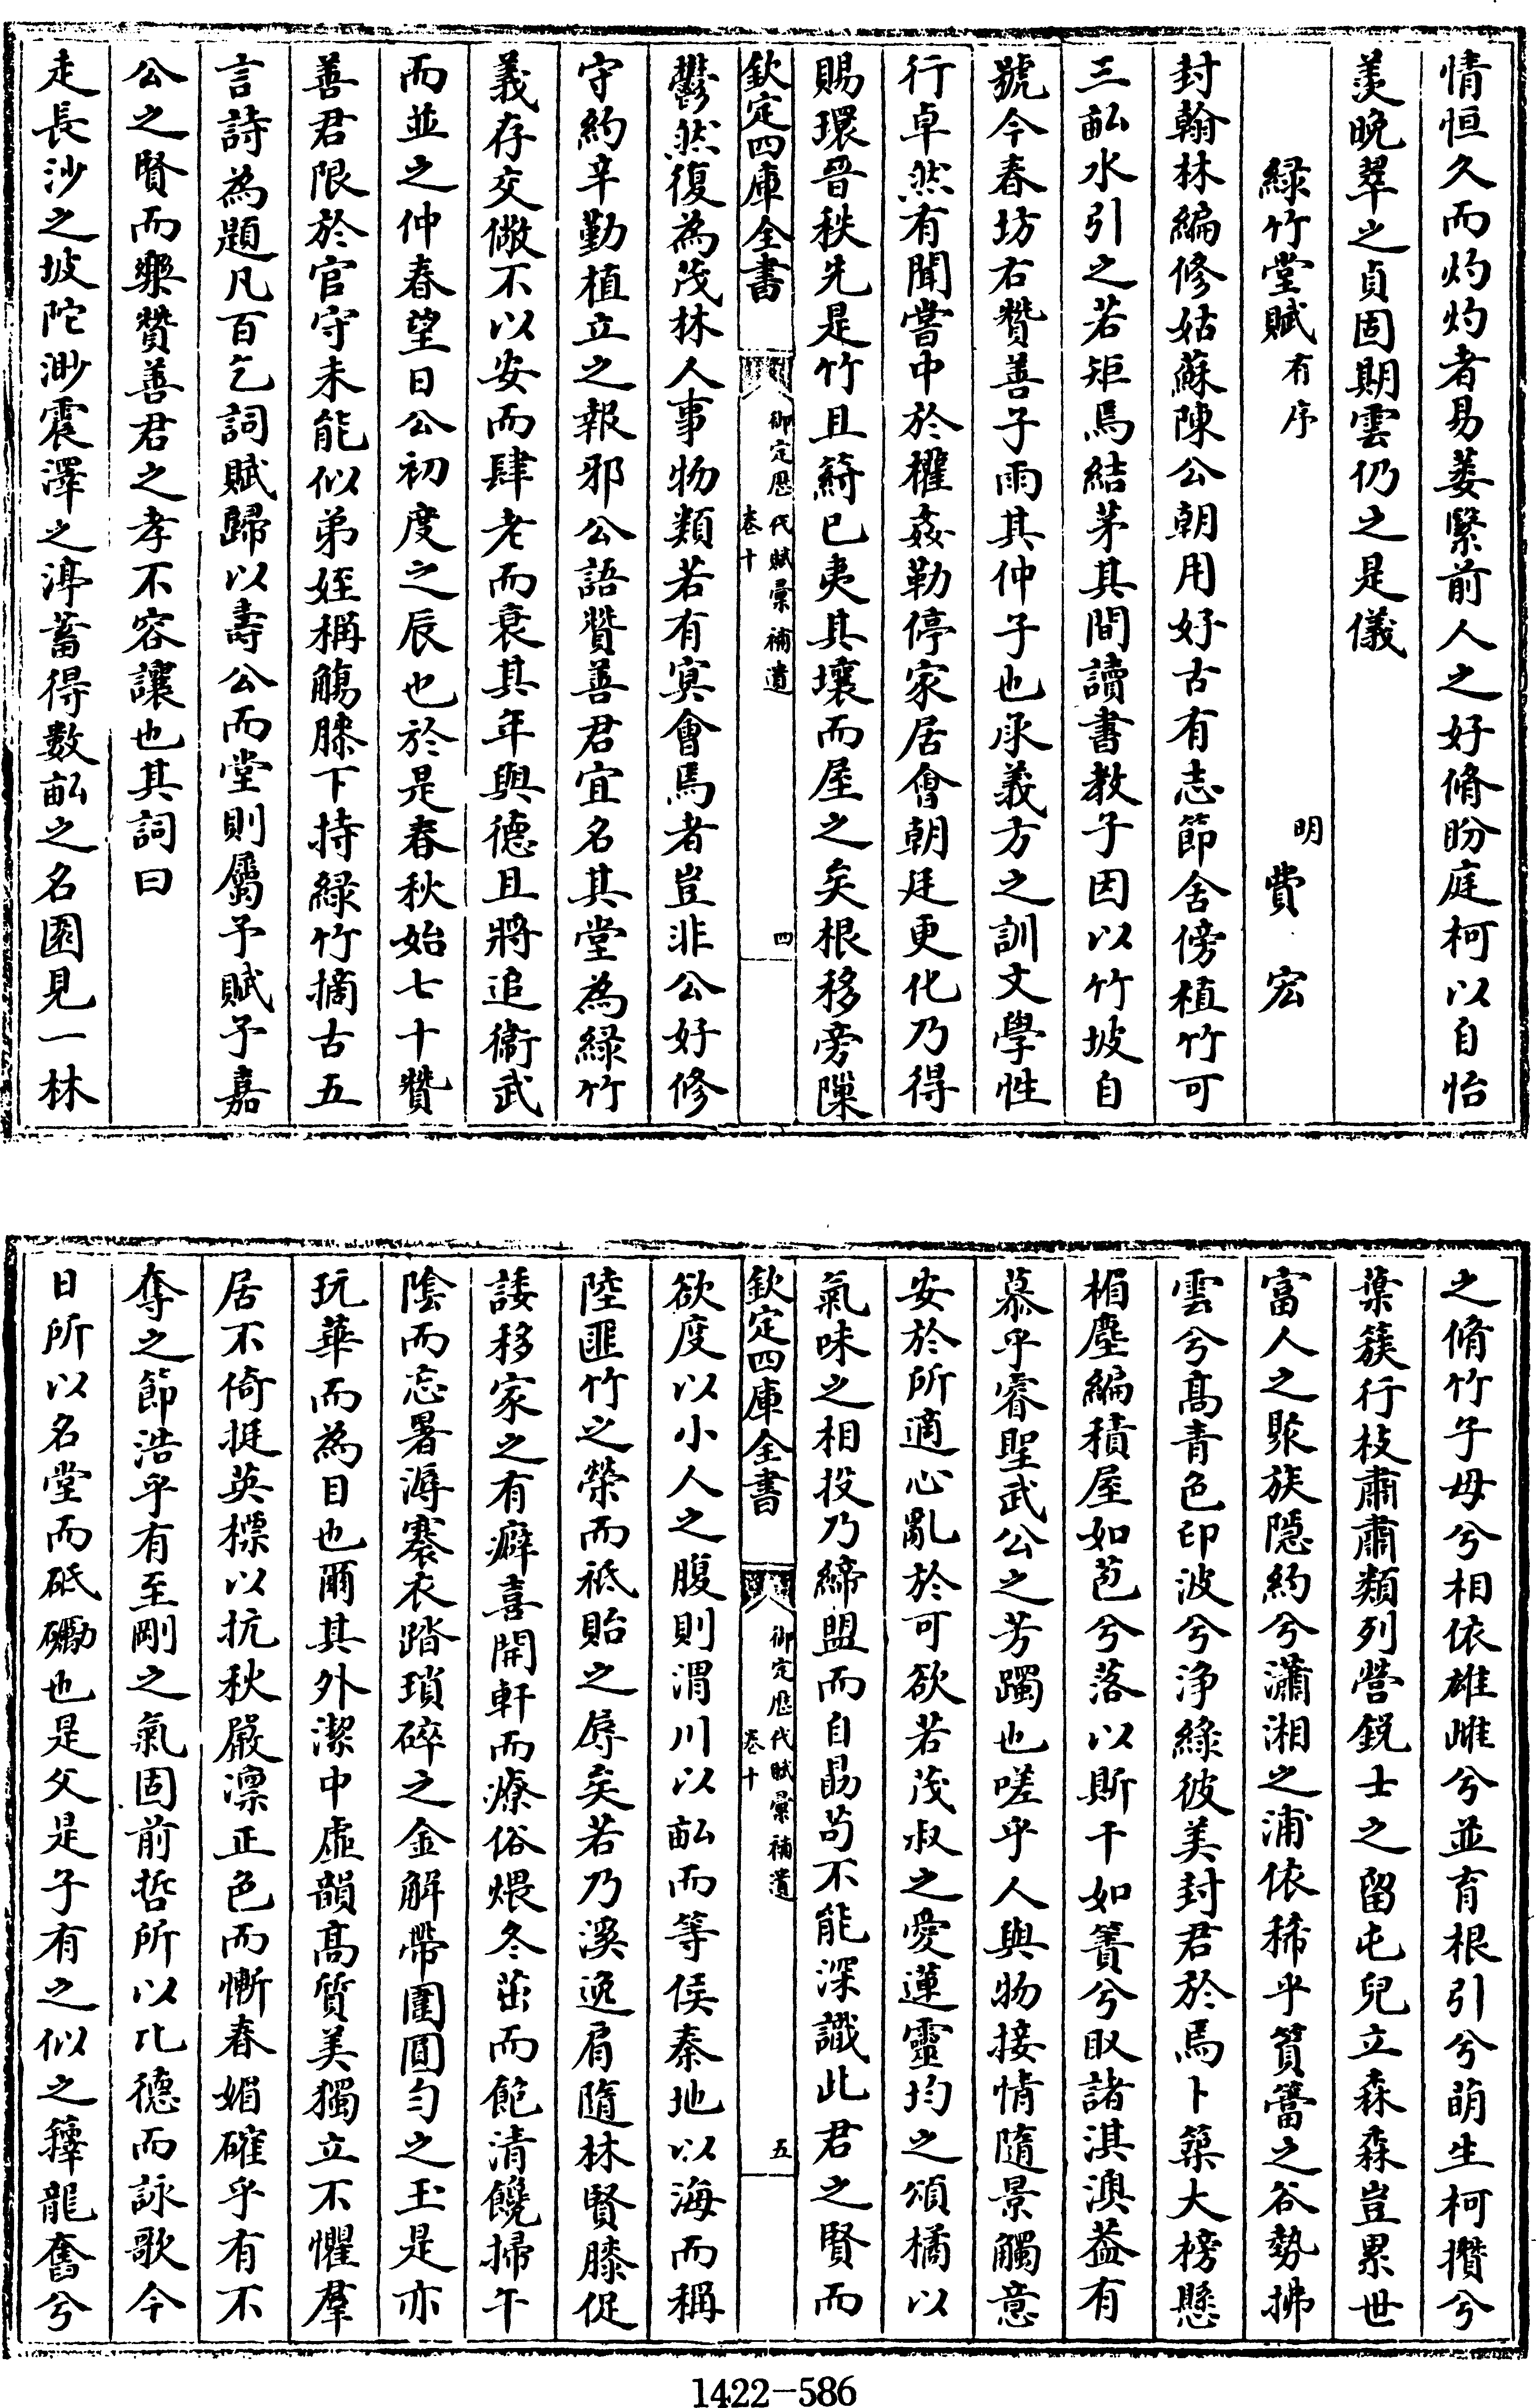 情恒久而灼灼者易萎繄前人之好脩盼庭柯以自怡
羨晚翠之貞固期雲仍之是儀
綠竹堂賦有序 明 費宏
封翰林編修姑蘇陳公朝用好古有志節舍傍植竹可
三畝水引之若矩焉結茅其間讀書教子因以竹坡自
號今春坊右贊善子雨其仲子也承義方之訓文學性
行卓然有聞嘗中於權姦勒停家居會朝廷更化乃得
賜環晉秩先是竹且䈎已夷其壤而屋之矣根移旁隟
欽定四庫全書 御定歷代賦彙補遺 卷十 四
鬱然復為茂林人事物類若有冥會焉者豈非公好修
守約辛勤植立之報邪公語贊善君宜名其堂為綠竹
義存交儆不以安而肆老而衰其年與德且將追衞武
而並之仲春望日公初度之辰也於是春秋始七十贊
善君限於官守未能似弟姪稱觴膝下持綠竹摘古五
言詩為題凡百乞詞賦歸以壽公而堂則屬予賦予嘉
公之賢而樂贊善君之孝不容讓也其詞曰
走長沙之坡陀渺震澤之渟蓄得數畝之名園見一林
之脩竹子母兮相依雄雌兮並育根引兮萌生柯攢兮
葉簇行枝肅肅類列營鋭士之留屯兒立森森豈累世
富人之聚族隠約兮瀟湘之浦依稀乎篔簹之谷勢拂
雲兮髙青色印波兮浄綠彼美封君於焉卜築大榜懸
楣塵編積屋如苞兮落以斯干如簀兮取諸淇澳葢有
慕乎睿聖武公之芳躅也嗟乎人與物接情隨景觸意
安於所適心亂於可欲若茂叔之愛蓮靈均之頌橘以
氣味之相投乃締盟而自勗茍不能深識此君之賢而
欽定四庫全書 御定歷代賦彙補遺 卷十 五
欲度以小人之腹則渭川以畝而等侯秦地以海而稱
陸匪竹之榮而祗貽之辱矣若乃溪逸肩隨林賢膝促
諉移家之有癖喜開軒而療俗煨冬茁而飽清饞掃午
陰而忘暑溽褰衣踏瑣碎之金解帶圍圓勻之玉是亦
玩華而為目也爾其外潔中虛韻髙質美獨立不懼羣
居不倚挺英標以抗秋嚴凛正色而慚春媚確乎有不
奪之節浩乎有至剛之氣固前哲所以比德而詠歌今
日所以名堂而砥礪也是父是子有之似之籜龍奮兮
1422-586